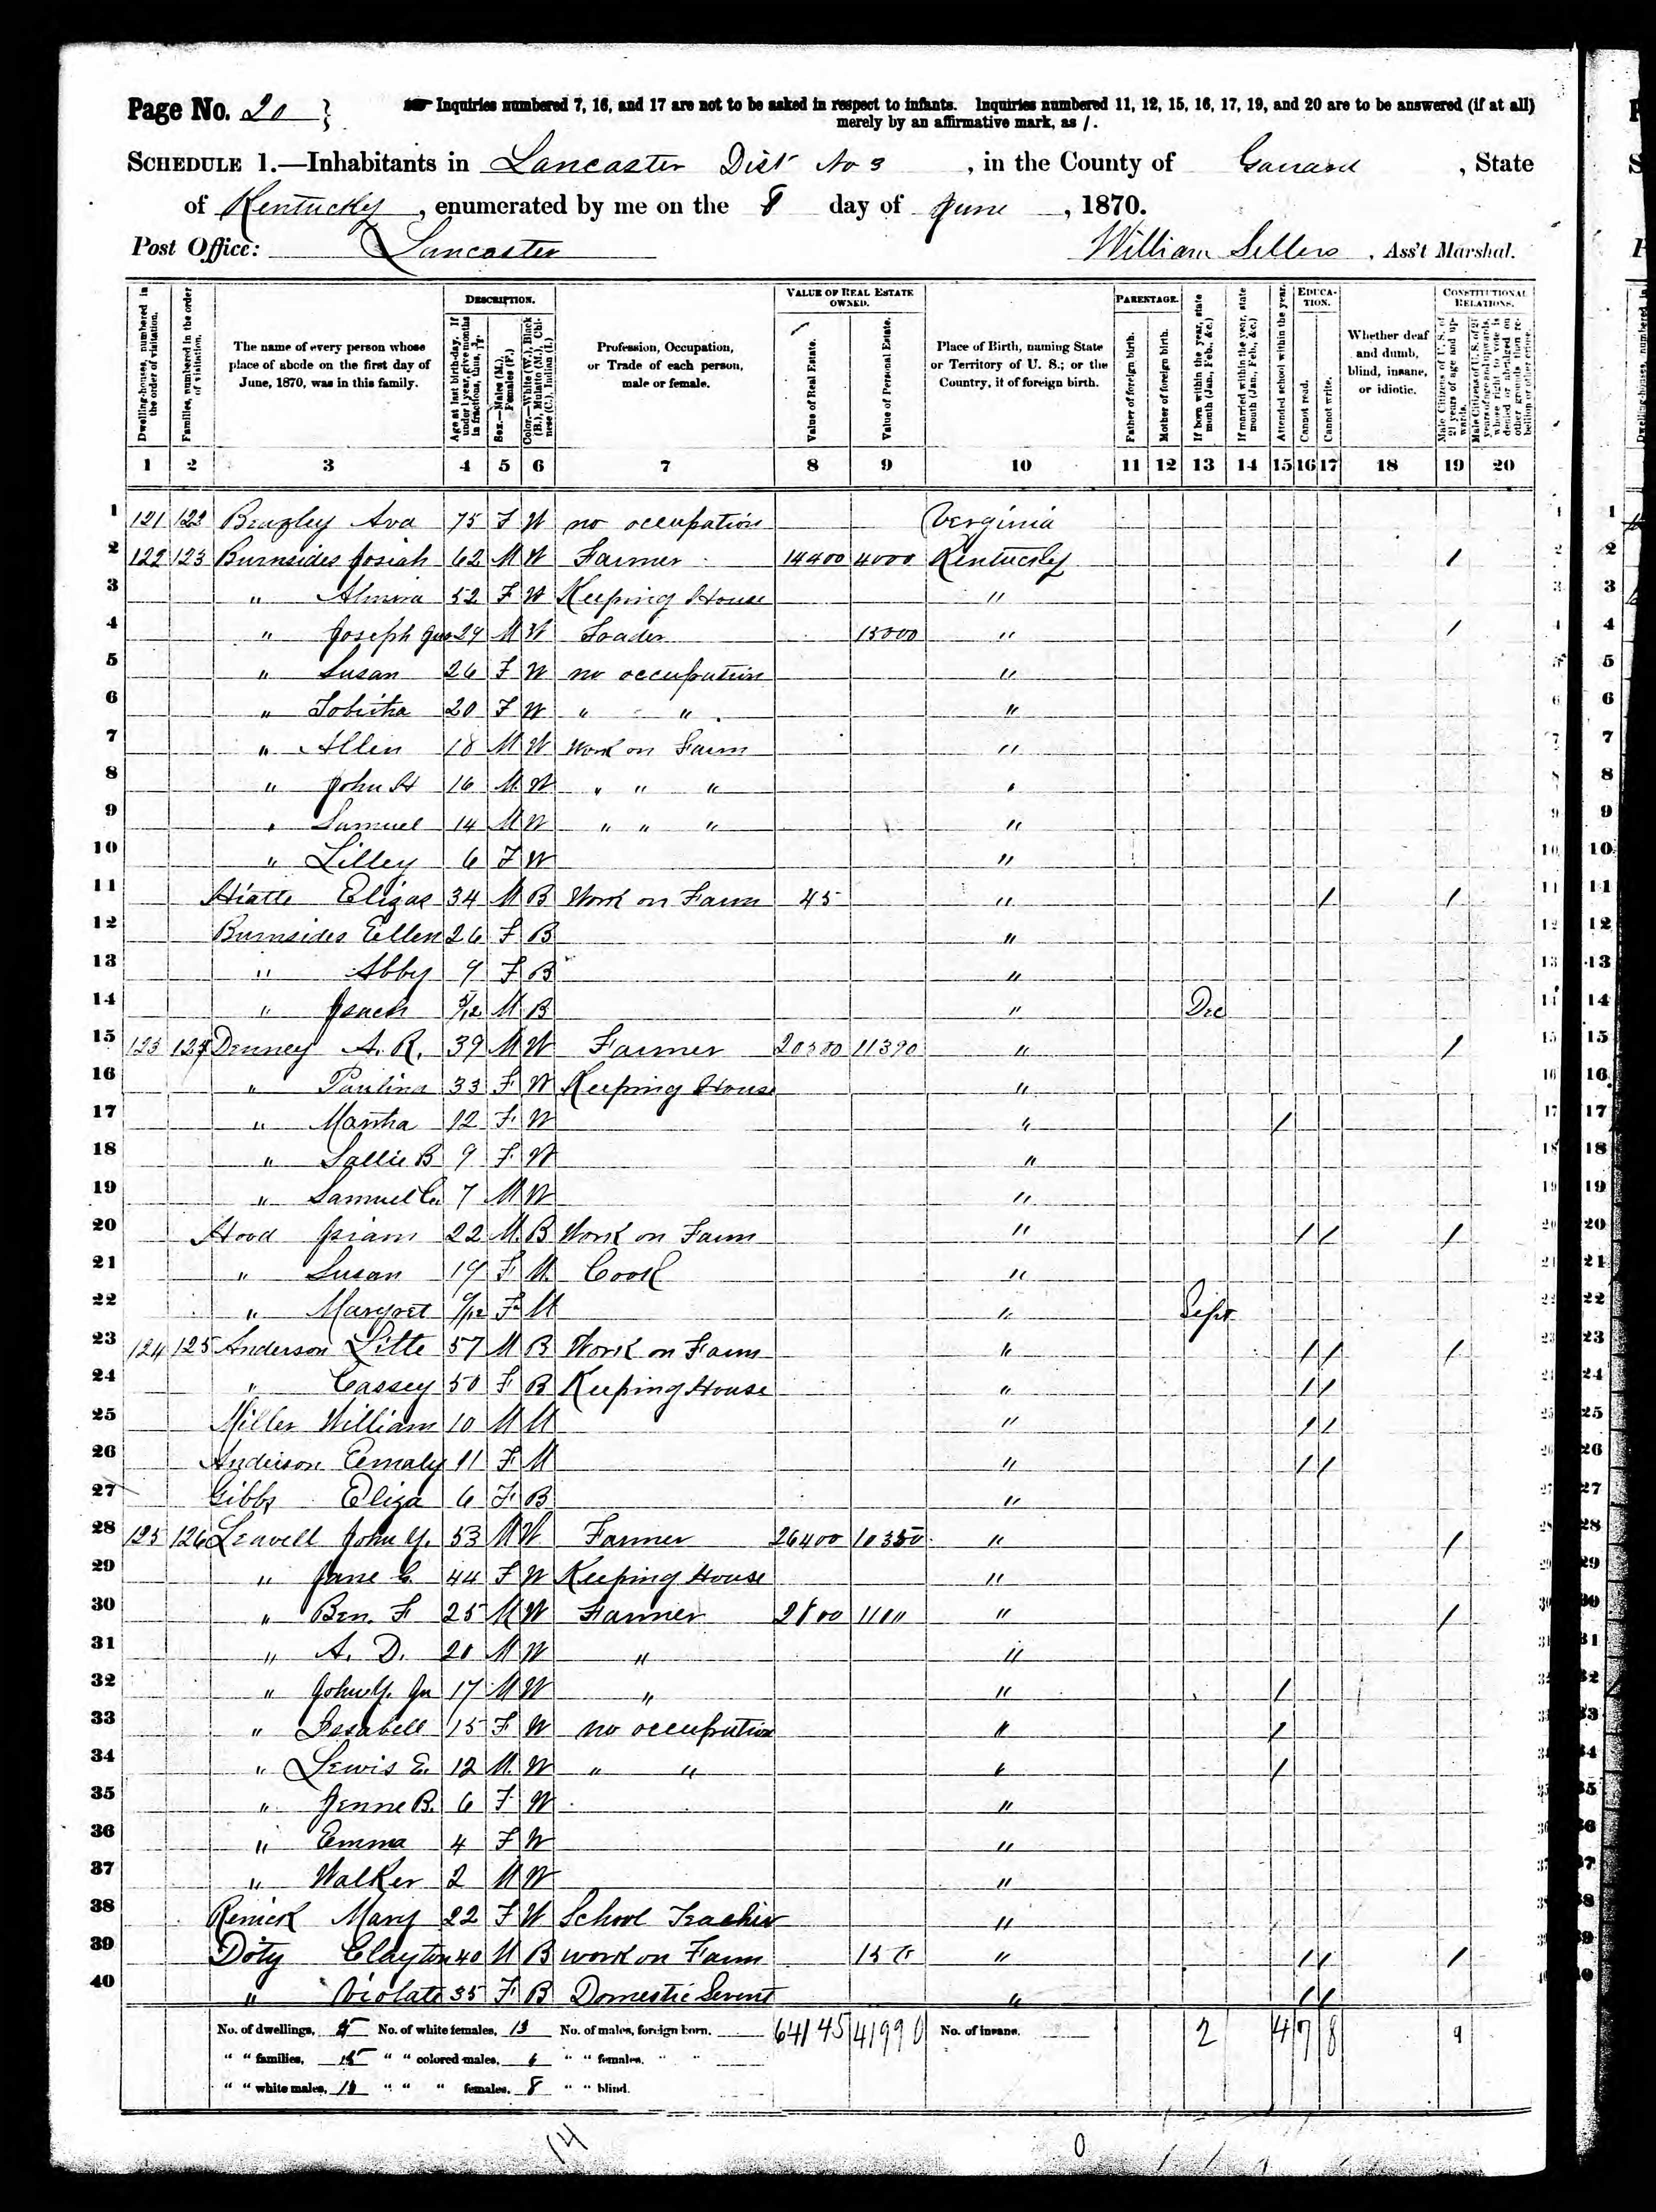 Page No. 20 } Inquiries numbered 7, 16, and 17 are not to be asked in respect to infants. Inquiries numbered 11, 12, 15, 16, 17, 19, and 20 are to be answered (if at all)
merely by an affirmative mark, as /.
SCHEDULE 1.—Inhabitants in Lancaster Dist No 3, in the County of Garrard, State
of Kentucky, enumerated by me on the 8 day of June, 1870.
Post Office: Lancaster William Sellers, Ass't Marshal.
Dwelling-houses, numbered in the order of visitation.
Families, numbered in the order of visitation.
The name of every person whose place of abode on the first day of June, 1870, was in this family.
DESCRIPTION.
Age at last birth-day. If under 1 year, give months in fractions, thus, 3/12.
Sex.—Males (M.), Females (F.)
Color.—White (W.), Black (B.), Mulatto (M.), Chinese (C.), Indian (I.)
Profession, Occupation, or Trade of each person, male or female.
VALUE OF REAL ESTATE OWNED.
Value of Real Estate.
Value of Personal Estate.
Place of Birth, naming State or Territory of U. S.; or the Country, if of foreign birth.
PARENTAGE.
Father of foreign birth.
Mother of foreign birth.
If born within the year, state month (Jan., Feb., &c.)
If married within the year, state month (Jan., Feb., &c.)
Attended school within the year.
EDUCATION.
Cannot read.
Cannot write.
Whether deaf and dumb, blind, insane, or idiotic.
CONSTITUTIONAL RELATIONS.
Male Citizens of U. S. of 21 years of age and upwards.
Male Citizens of U. S. of 21 years of age and upwards, whose right to vote is denied or abridged on other grounds than rebellion or other crime.
1 2 3 4 5 6 7 8 9 10 11 12 13 14 15 16 17 18 19 20
1 121 122 Beazley Ava 75 F W no occupation Verginia 1
2 122 123 Burnsides Josiah 62 M W Farmer 14400 4000 Kentucky / 2
3 " Almira 52 F W Keeping House " 3
4 " Joseph 29 M W 15000 " / 4
5 " Susan 26 F W no occupation " 5
6 " Tobitha 20 F W " " " 6
7 " Allen 18 M W Work on Farm " 7
8 " John H 16 M W " " " " 8
9 " Samuel 14 M W " " " " 9
10 " Lilley 6 F W " 10
11 Hiatte Elizas 34 M B Work on Farm 45 " / / 11
12 Burnsides Ellen 26 F B " 12
13 " Abby 9 F B " 13
14 " 5/12 M B " Dec 14
15 123 124 Denney A. R. 39 M W Farmer 11390 " / 15
16 " Paulina 33 F W Keeping House " 16
17 " Martha 12 F W " / 17
18 " Sallie B 9 F W " 18
19 " Samuel 7 M W " 19
20 Hood 22 M B Work on Farm " / / / 20
21 " Susan 19 F M Cook " 21
22 " Margret 9/12 F M " Sept 22
23 124 125 Anderson Litte 57 M B Work on Farm " / / / 23
24 " Cassey 50 F B Keeping House " / / 24
25 Miller William 10 M M " / / 25
26 Anderson Emaly 11 F M " / / 26
27 Gibbs Eliza 6 F B " 27
28 125 126 Leavell John Y. 53 M W Farmer 26400 10350 " / 28
29 " Jane E. 44 F W Keeping House " 29
30 " Ben. F 25 M W Farmer 2800 " / 30
31 " A. D. 20 M W " " 31
32 " John Y. Jn 17 M W " " / 32
33 " Issabell 15 F W no occupation " / 33
34 " Lewis E. 12 M W " " " / 34
35 " Jenne B. 6 F W " 35
36 " Emma 4 F W " 36
37 " Walker 2 M W " 37
38 Renick Mary 22 F W School Teacher " 38
39 Doty Clayton 40 M B work on Farm 150 " / / / 39
40 " Violate 35 F B Domestic Servent " / / 40
No. of dwellings, 5 No. of white females, 13 No. of males, foreign born. 64145 41990 No. of insane. 2 4 7 8 9
" " families, " " colored males, 6 " " females, " "
" " white males, 13 " " " females, 8 " " blind.
14 0